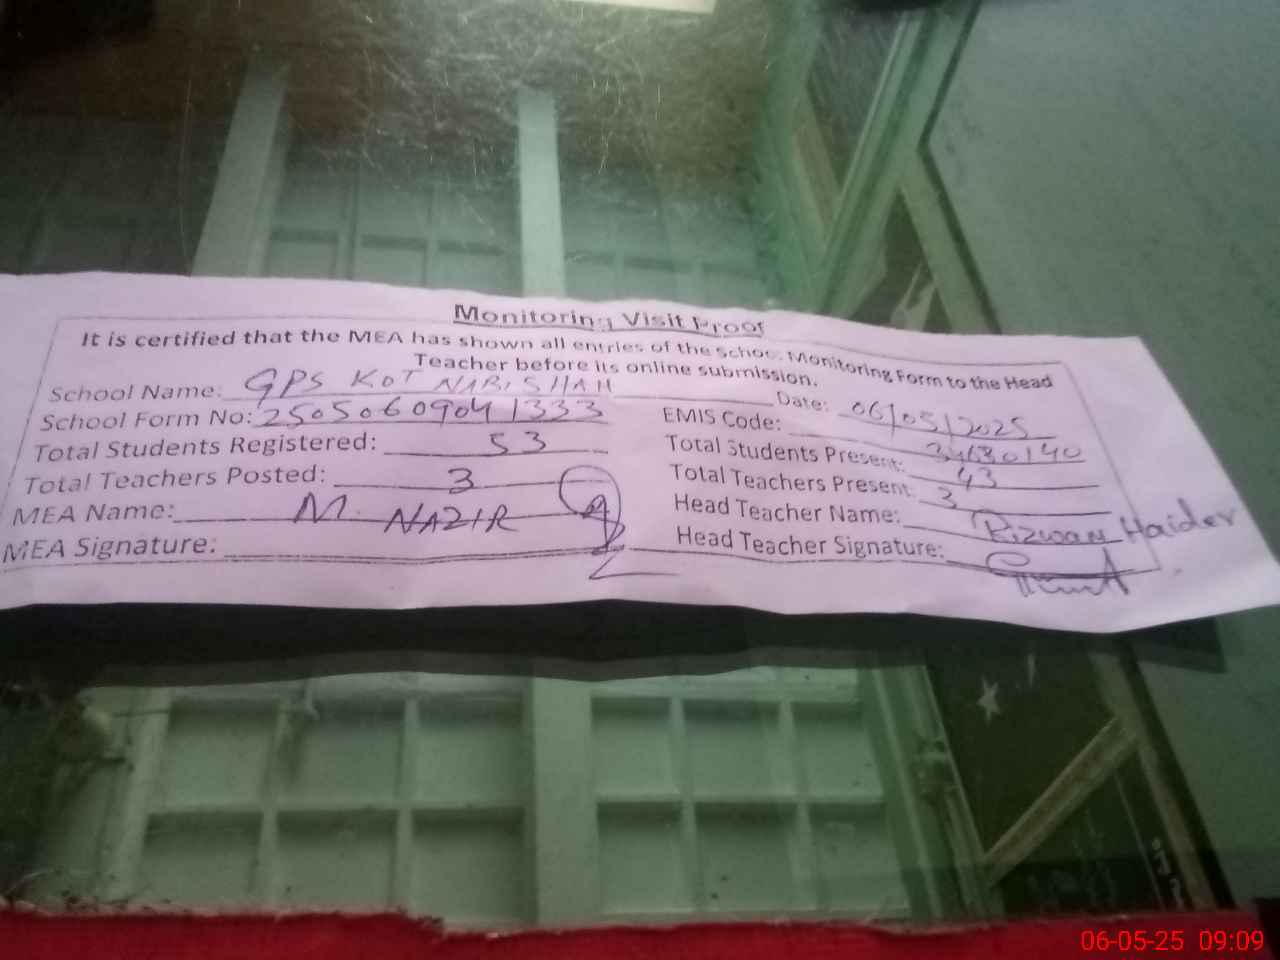 Monitoring Visit Proof
It is certified that the MEA has shown all entries of the School Monitoring Form to the Head
Teacher before its online submission.
School Name: GPS KOT NABI SHAH Date: 06/05/2025
School Form No: 2505060904 1333 EMIS Code: 34130140
Total Students Registered: 53 Total Students Present: 43
Total Teachers Posted: 3 Total Teachers Present: 3
MEA Name: M. NAZIR Head Teacher Name: Rizwan Haider
MEA Signature: Head Teacher Signature:
06-05-25 09:09